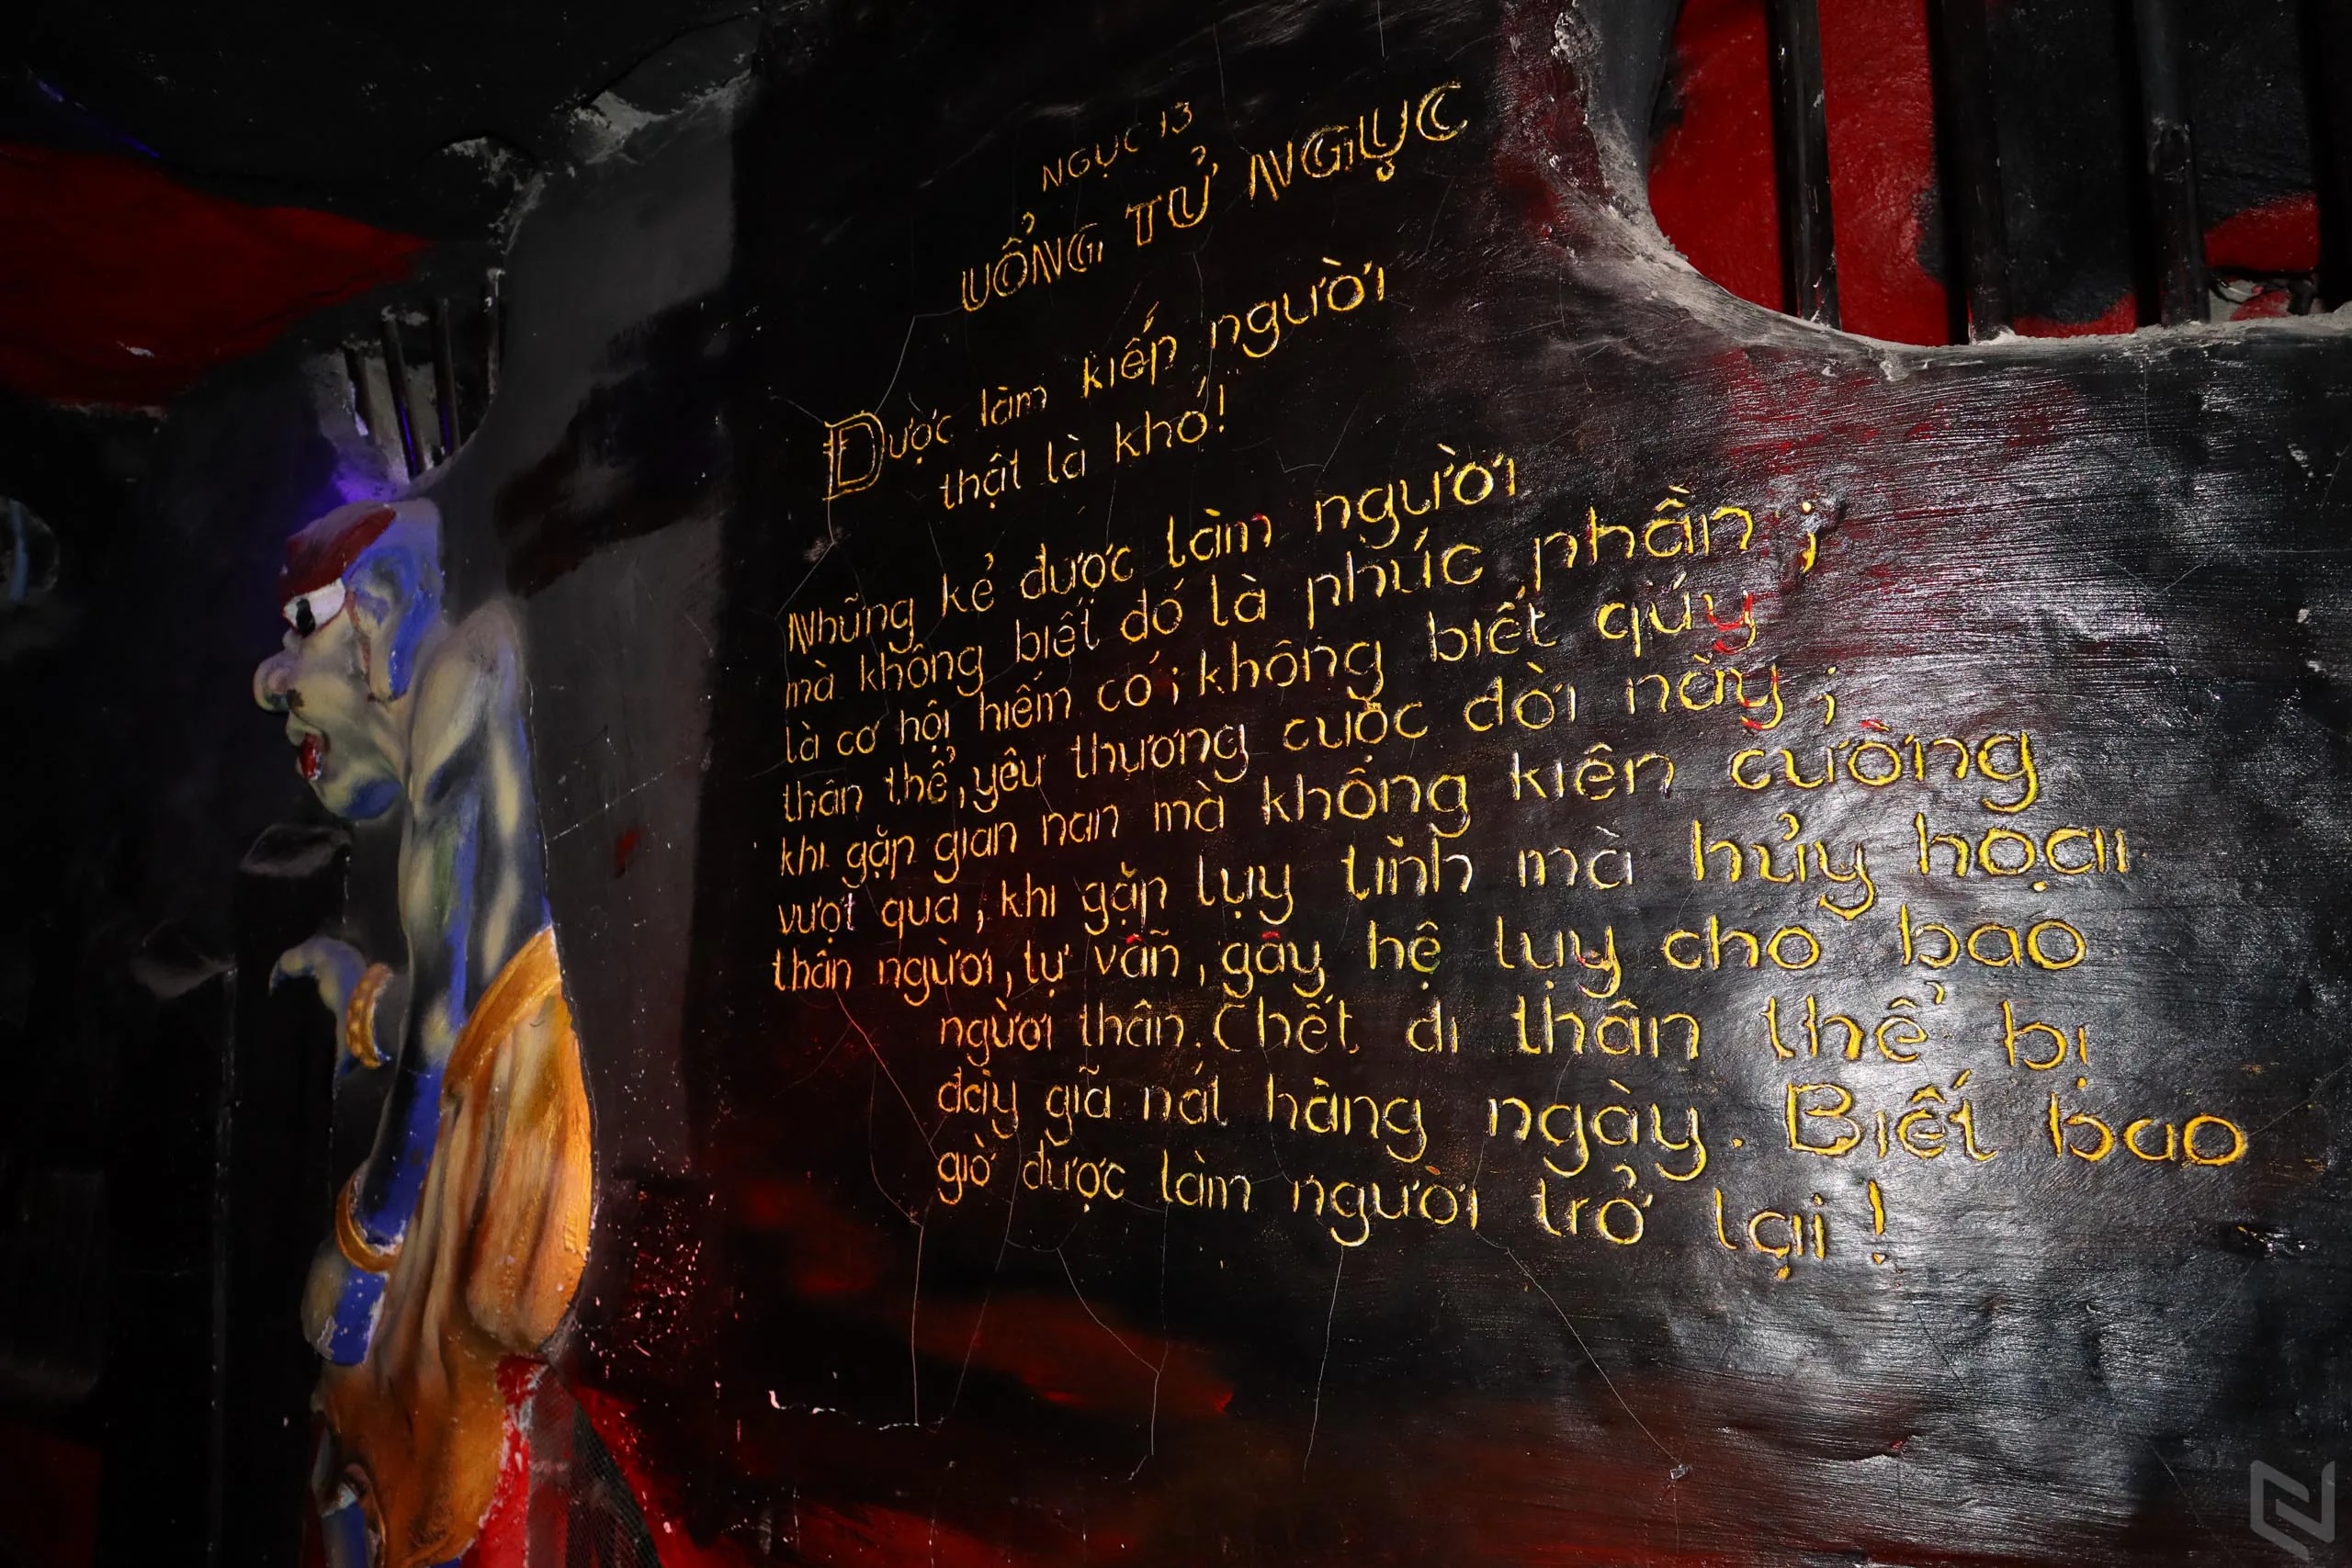 NGỤC 13
UỔNG TỬ NGỤC
Được làm kiếp người
thật là khó!
Những kẻ được làm người
mà không biết đó là phúc phần;
là cơ hội hiếm có; không biết qúy
thân thể, yêu thương cuộc đời này;
khi gặp gian nan mà không kiên cường
vượt qua, khi gặp lụy tình mà hủy hoại
thân người, tự vẫn, gây hệ lụy cho bao
người thân. Chết đi thân thể bị
đày giã nát hàng ngày. Biết bao
giờ được làm người trở lại!